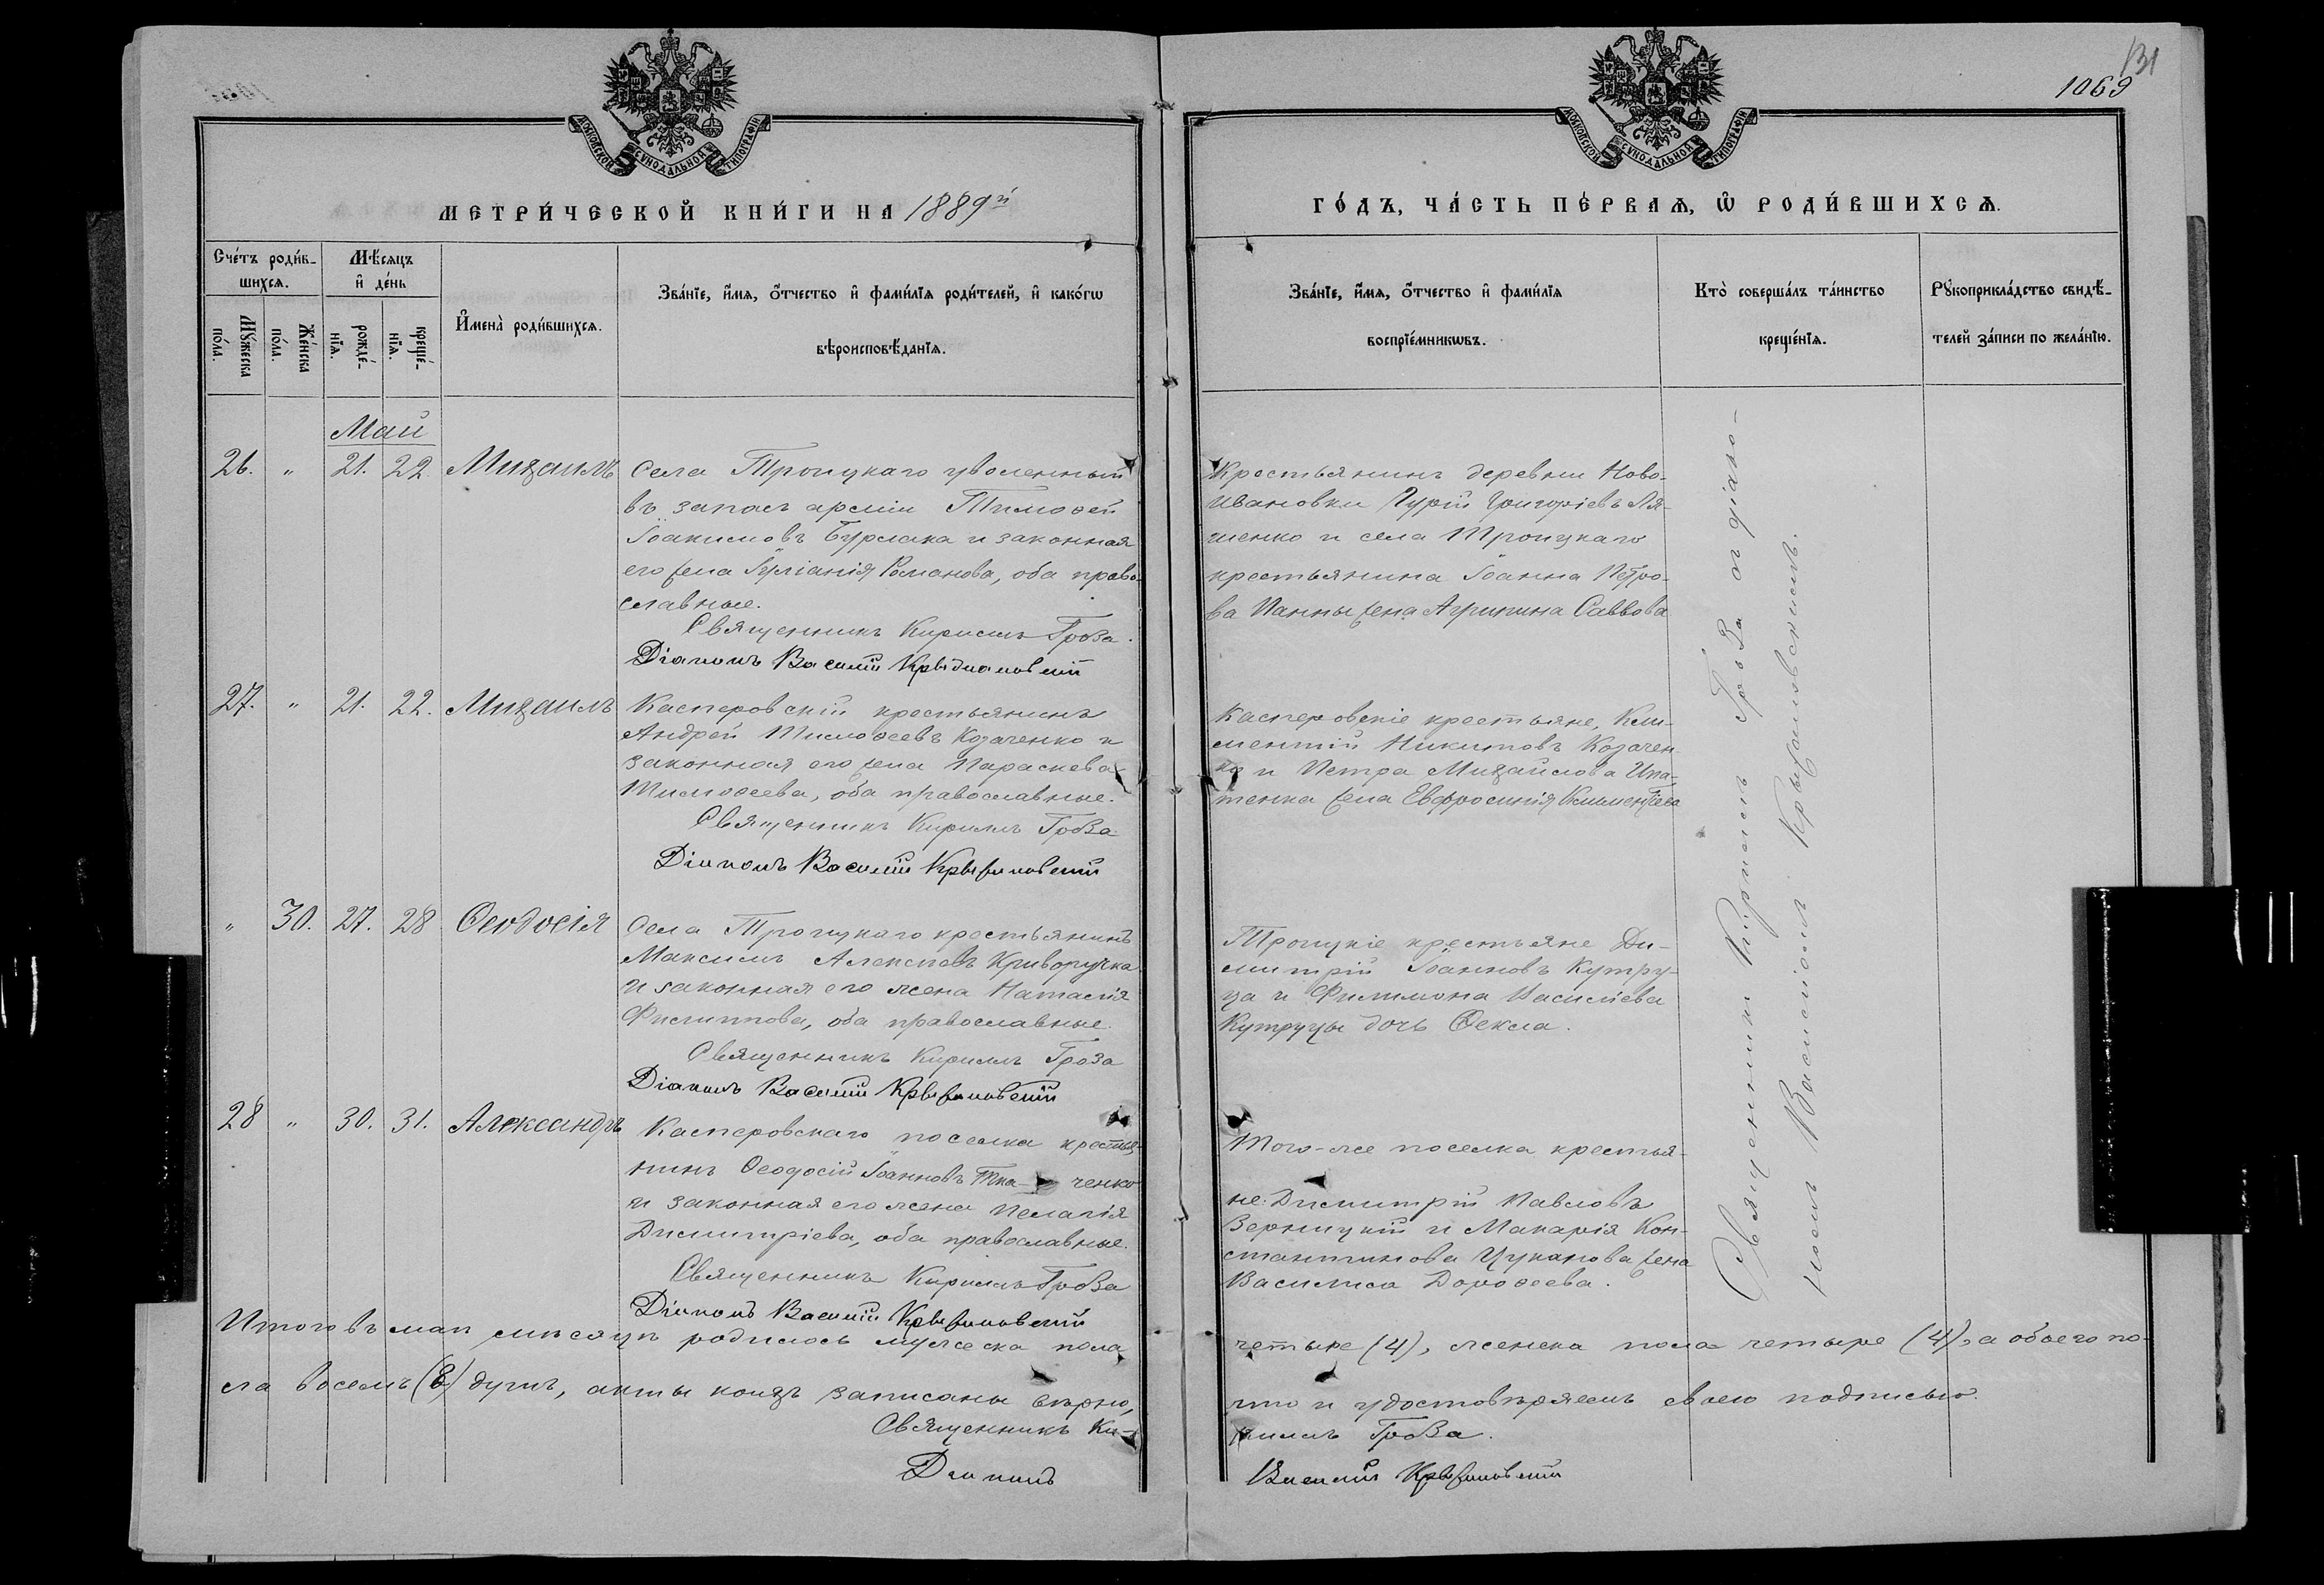 131
1069
МОСКОВСКОЙ СУНОДАЛЬНОЙ ТИПОГРАФІИ
МОСКОВСКОЙ СУНОДАЛЬНОЙ ТИПОГРАФІИ
МЕТРИ́ЧЕСКОЙ КНИ́ГИ НА 1889й
ГО́ДЪ, ЧА́СТЬ ПЕ́РВАЯ, Ѡ РОДИ́ВШИХСЯ.
Сче́тъ роди́в-
шихся.
Мꙋ́жеска
по́ла.
Же́нска
по́ла.
Мѣ́сяцъ
и҆ де́нь
рожде́-
нїя.
креще́-
нїя.
И҆мена̀ роди́вшихся.
Зва́нїе, и҆́мя, ѻ҆́тчество и҆ фами́лїя роди́телей, и҆ како́гѡ
вѣроисповѣ́данїя.
Зва́нїе, и҆́мя, ѻ҆́тчество и҆ фами́лїя
воспрїе́мникѡвъ.
Кто̀ соверша́лъ та́инство
креще́нїя.
Рꙋкоприкла́дство свидѣ́-
телей за́писи по жела́нїю.
Май
26. " 21. 22. Михаилъ
Села Троицкаго уволенный
въ запасъ арміи Тимоѳей
Іоакимовъ Бурлака и законная
его жена Іуліанія Романова, оба право-
славные.
Священникъ Кириллъ Гроза.
Діаконъ Василій Крыжановскій
Крестьянинъ деревни Ново-
Ивановки Гурій Григоріевъ Ля-
шенко и села Троицкаго
крестьянина Іоанна Петро-
ва Панны жена Агрипина Саввова
27. " 21. 22. Михаилъ
Касперовскій крестьянинъ
Андрей Тимоѳеевъ Козаченко и
законная его жена Параскева
Тимоѳеева, оба православные.
Священникъ Кириллъ Гроза
Діаконъ Василій Крыжановскій
Касперовскіе крестьяне, Кли-
ментій Никитовъ Козачен-
ко и Петра Михайлова Ипа-
тенка жена Евфросинія Климентіева
" 30. 27. 28 Ѳеодосія
Села Троицкаго крестьянинъ
Максимъ Алексіевъ Криворучка
и законная его жена Наталія
Филиппова, оба православные.
Священникъ Кириллъ Гроза
Діаконъ Василій Крыжановскій
Троицкіе крестьяне Ди-
митрій Іоанновъ Кутру-
ца и Филимона Василіева
Кутруцы дочь Ѳекла.
28 " 30. 31. Александръ
Касперовскаго поселка крестья-
нинъ Ѳеодосій Іоанновъ Тка- ченко
и законная его жена Пелагія
Димитріева, оба православные.
Священникъ Кириллъ Гроза
Діаконъ Василій Крыжановскій
Того-же поселка крестья-
не: Димитрій Павловъ
Верницкій и Макарія Кон-
стантинова Цуканова жена
Василиса Дороѳеева.
Священникъ Кириллъ Гроза съ діако-
номъ Василіемъ Крыжановскимъ.
Итого въ маѣ мѣсяцѣ родилось мужеска пола
четыре (4), женска пола четыре (4), а обоего по-
ла восемь (8) душъ, акты коихъ записаны вѣрно,
что и удостовѣряемъ своею подписью.
Священникъ Ки-
риллъ Гроза.
Діаконъ
Василій Крыжановскій